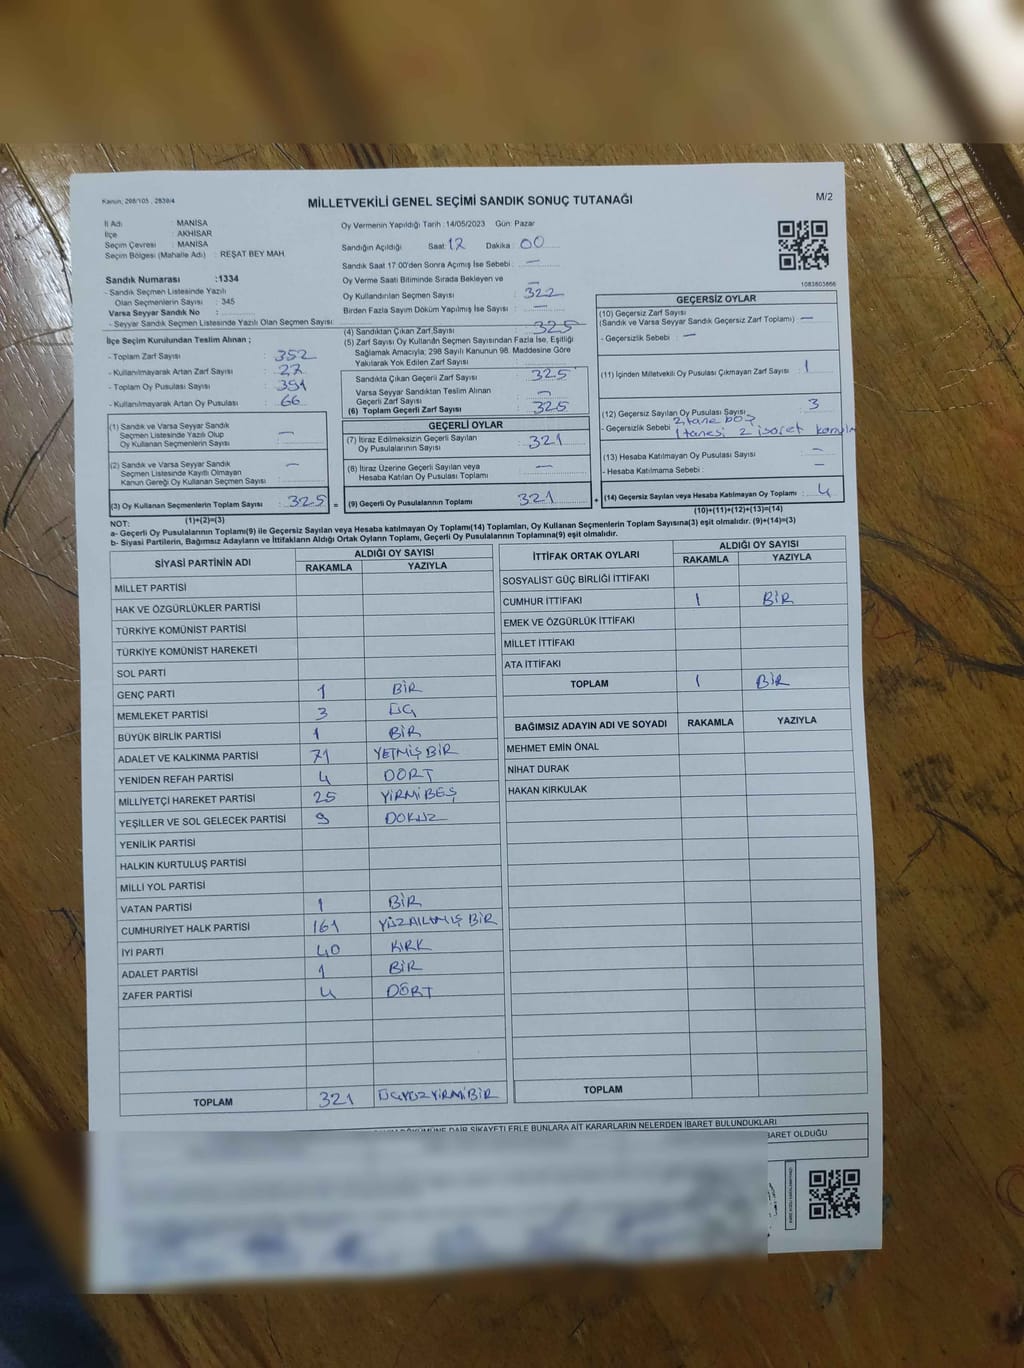 Kanun; 298/105 , 2839/4
MİLLETVEKİLİ GENEL SEÇİMİ SANDIK SONUÇ TUTANAĞI
M/2
İl Adı : MANİSA
İlçe : AKHİSAR
Seçim Çevresi : MANİSA
Seçim Bölgesi (Mahalle Adı) : REŞAT BEY MAH.
Sandık Numarası :1334
- Sandık Seçmen Listesinde Yazılı
Olan Seçmenlerin Sayısı : 345
Varsa Seyyar Sandık No :
- Seyyar Sandık Seçmen Listesinde Yazılı Olan Seçmen Sayısı:
İlçe Seçim Kurulundan Teslim Alınan ;
- Toplam Zarf Sayısı : 352
- Kullanılmayarak Artan Zarf Sayısı : 27
- Toplam Oy Pusulası Sayısı : 391
- Kullanılmayarak Artan Oy Pusulası : 66
(1) Sandık ve Varsa Seyyar Sandık
Seçmen Listesinde Yazılı Olup
Oy Kullanan Seçmenlerin Sayısı : —
(2) Sandık ve Varsa Seyyar Sandık
Seçmen Listesinde Kayıtlı Olmayan
Kanun Gereği Oy Kullanan Seçmen Sayısı : —
(3) Oy Kullanan Seçmenlerin Toplam Sayısı : 325 =
(1)+(2)=(3)
Oy Vermenin Yapıldığı Tarih : 14/05/2023 Gün: Pazar
Sandığın Açıldığı Saat: 12 Dakika : 00
Sandık Saat 17:00'den Sonra Açımış İse Sebebi : —
Oy Verme Saati Bitiminde Sırada Bekleyen ve
Oy Kullandırılan Seçmen Sayısı : 322
Birden Fazla Sayım Döküm Yapılmış İse Sayısı : —
(4) Sandıktan Çıkan Zarf Sayısı : 325
(5) Zarf Sayısı Oy Kullanan Seçmen Sayısından Fazla İse, Eşitliği
Sağlamak Amacıyla; 298 Sayılı Kanunun 98. Maddesine Göre
Yakılarak Yok Edilen Zarf Sayısı :
Sandıkta Çıkan Geçerli Zarf Sayısı : 325
Varsa Seyyar Sandıktan Teslim Alınan
Geçerli Zarf Sayısı : —
(6) Toplam Geçerli Zarf Sayısı : 325
GEÇERLİ OYLAR
(7) İtiraz Edilmeksizin Geçerli Sayılan
Oy Pusulalarının Sayısı : 321
(8) İtiraz Üzerine Geçerli Sayılan veya
Hesaba Katılan Oy Pusulası Toplamı : —
(9) Geçerli Oy Pusulalarının Toplamı : 321 +
1083803866
GEÇERSİZ OYLAR
(10) Geçersiz Zarf Sayısı
(Sandık ve Varsa Seyyar Sandık Geçersiz Zarf Toplamı) : —
- Geçersizlik Sebebi : —
(11) İçinden Milletvekili Oy Pusulası Çıkmayan Zarf Sayısı : 1
(12) Geçersiz Sayılan Oy Pusulası Sayısı : 3
- Geçersizlik Sebebi : 2 tane boş
1 tanesi 2 işaret
(13) Hesaba Katılmayan Oy Pusulası Sayısı : —
- Hesaba Katılmama Sebebi : —
(14) Geçersiz Sayılan veya Hesaba Katılmayan Oy Toplamı : 4
(10)+(11)+(12)+(13)=(14)
NOT:
a- Geçerli Oy Pusulalarının Toplamı(9) ile Geçersiz Sayılan veya Hesaba katılmayan Oy Toplamı(14) Toplamları, Oy Kullanan Seçmenlerin Toplam Sayısına(3) eşit olmalıdır. (9)+(14)=(3)
b- Siyasi Partilerin, Bağımsız Adayların ve İttifakların Aldığı Ortak Oyların Toplamı, Geçerli Oy Pusulalarının Toplamına(9) eşit olmalıdır.
SİYASİ PARTİNİN ADI ALDIĞI OY SAYISI
RAKAMLA YAZIYLA
MİLLET PARTİSİ
HAK VE ÖZGÜRLÜKLER PARTİSİ
TÜRKİYE KOMÜNİST PARTİSİ
TÜRKİYE KOMÜNİST HAREKETİ
SOL PARTİ
GENÇ PARTİ 1 BİR
MEMLEKET PARTİSİ 3 ÜÇ
BÜYÜK BİRLİK PARTİSİ 1 BİR
ADALET VE KALKINMA PARTİSİ 71 YETMİŞ BİR
YENİDEN REFAH PARTİSİ 4 DÖRT
MİLLİYETÇİ HAREKET PARTİSİ 25 YİRMİ BEŞ
YEŞİLLER VE SOL GELECEK PARTİSİ 9 DOKUZ
YENİLİK PARTİSİ
HALKIN KURTULUŞ PARTİSİ
MİLLİ YOL PARTİSİ
VATAN PARTİSİ 1 BİR
CUMHURİYET HALK PARTİSİ 161 YÜZALTMIŞ BİR
İYİ PARTİ 40 KIRK
ADALET PARTİSİ 1 BİR
ZAFER PARTİSİ 4 DÖRT
TOPLAM 321 ÜÇYÜZ YİRMİ BİR
İTTİFAK ORTAK OYLARI ALDIĞI OY SAYISI
RAKAMLA YAZIYLA
SOSYALİST GÜÇ BİRLİĞİ İTTİFAKI
CUMHUR İTTİFAKI 1 BİR
EMEK VE ÖZGÜRLÜK İTTİFAKI
MİLLET İTTİFAKI
ATA İTTİFAKI
TOPLAM 1 BİR
BAĞIMSIZ ADAYIN ADI VE SOYADI RAKAMLA YAZIYLA
MEHMET EMİN ÖNAL
NİHAT DURAK
HAKAN KIRKULAK
TOPLAM
DÖKÜMÜNE DAİR ŞİKAYETLERLE BUNLARA AİT KARARLARIN NELERDEN İBARET BULUNDUKLARI
İBARET OLDUĞU